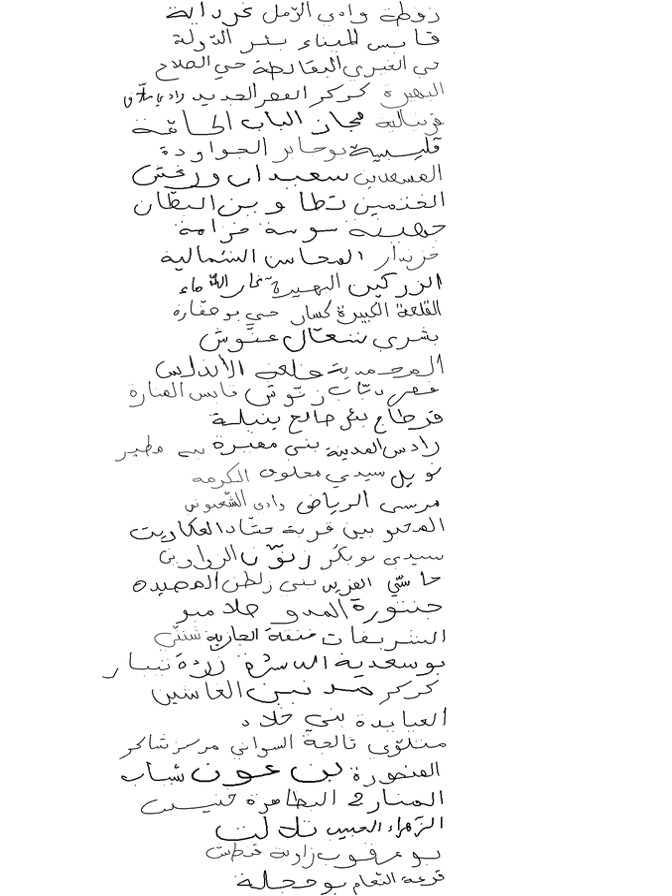 زوطة وادي الرمل غرداية
قابس الميناء بئر الدولة
حي الخيري البقالطة حي الصلاح
البحيرة كركر القصر الجديد
قرنبالية مجاز الباب الحافة
قليبية بوجابر الحواودة
السعدين سعيدان ورغش
الغنمين تطاوين البطان
جهينة سوسة مرامة
خزندار المحاس الشمالية
الزركين البحيرة
القلعة الكبيرة كسار حي بوحفارة
بشري شعال عنوش
المحمدية ملعب الأندلس
زتوش قابس المنارة
قرطاج بئر صالح ينبلة
رادس المدينة بني مغيرة مطير
نويل سيدي مخلوف الكرمة
مرسى الرياض وادي الشعبوني
بين قرية حشاد العكاريت
سيدي بوبكر زنوش الرواديف
حاسي الفريد بني زلطن المصيدة
جنتورة المدو
الشريفات العازية شنني
بوسعدية
كركر مدنين العاشين
العبايدة بني خلاد
متلوي تالجة السواني مركز شاكر
المنصورة بن عون شباب
المنار 2 البطاهرة خنيس
الزهراء الحبيب تلالت
بومرقوب زاوية قنطش
قرعة النعام بوحجلة